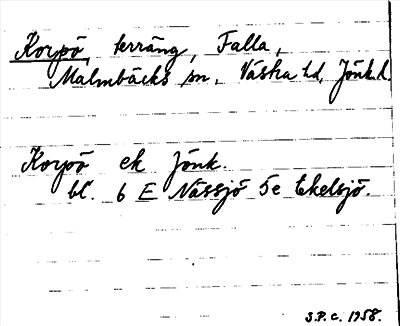 Korpö, terräng, Falla,
Malmbäcks sn, Västra hd, Jönk.l.
Korpö ek Jönk.
bl. 6 E Nässjö 5e Ekelsjö.
S.P.C. 1958.